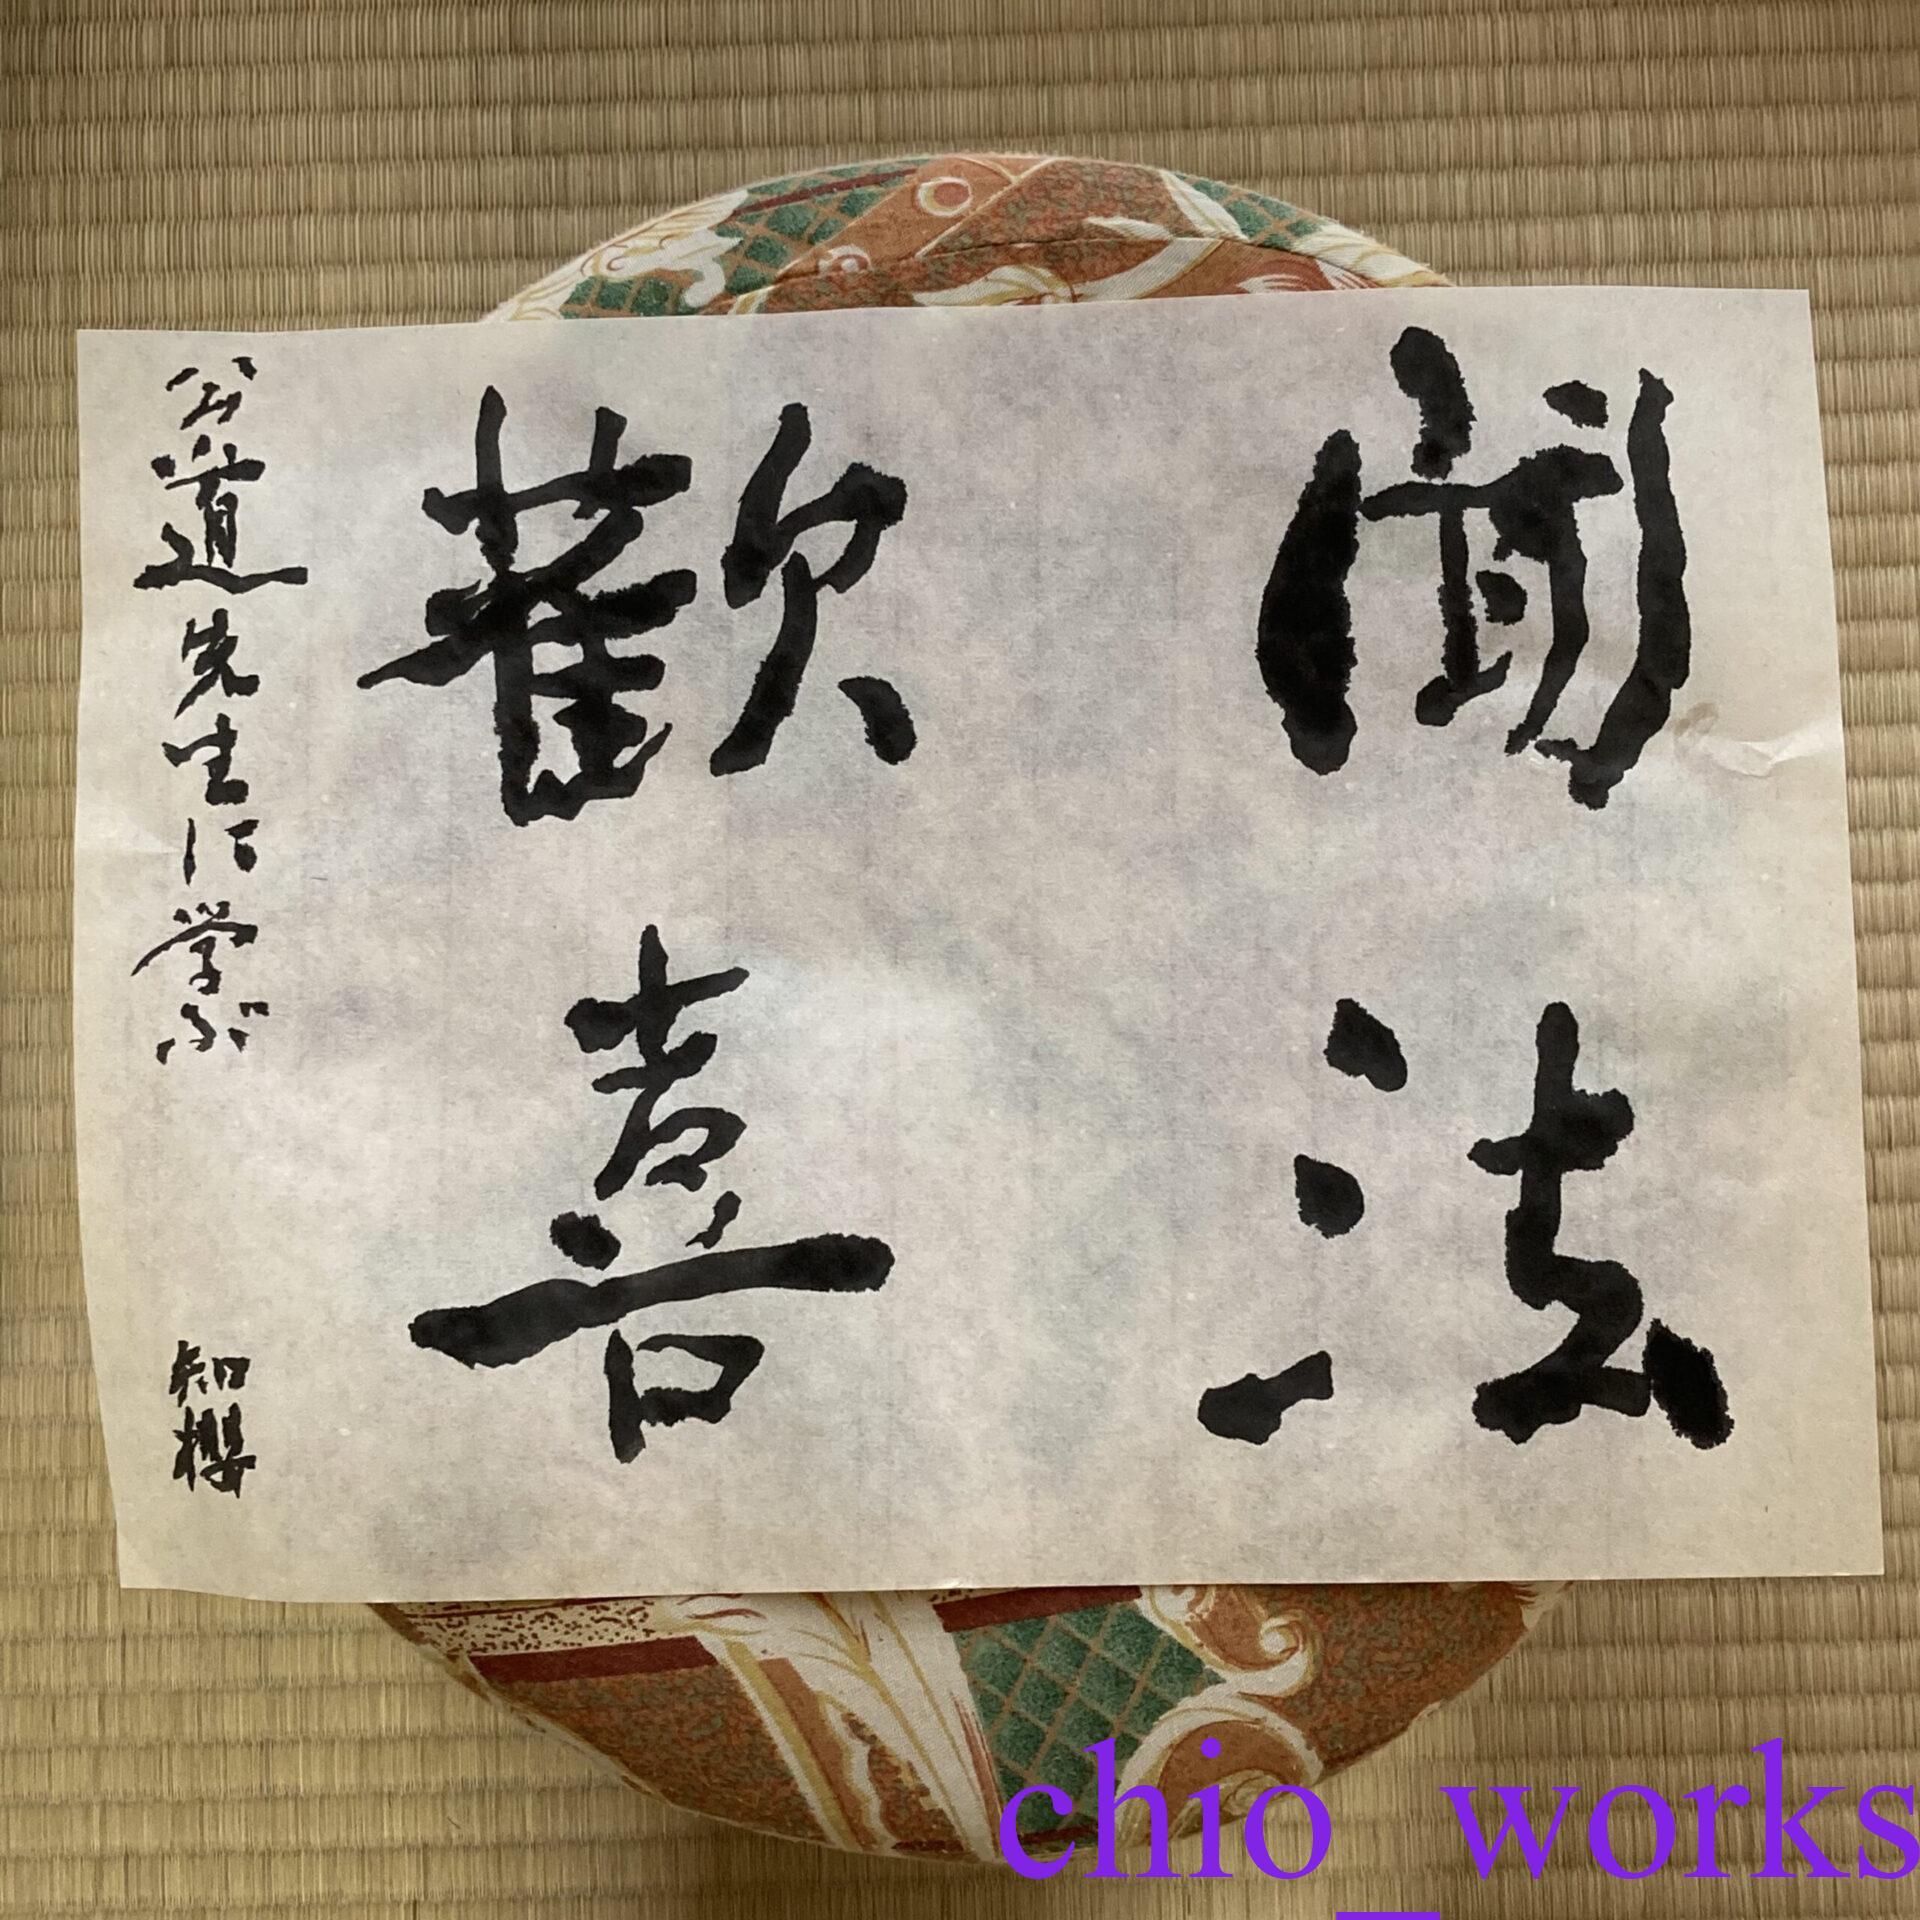 聞法
歓喜
公道先生に学ぶ
知櫻
chio_works